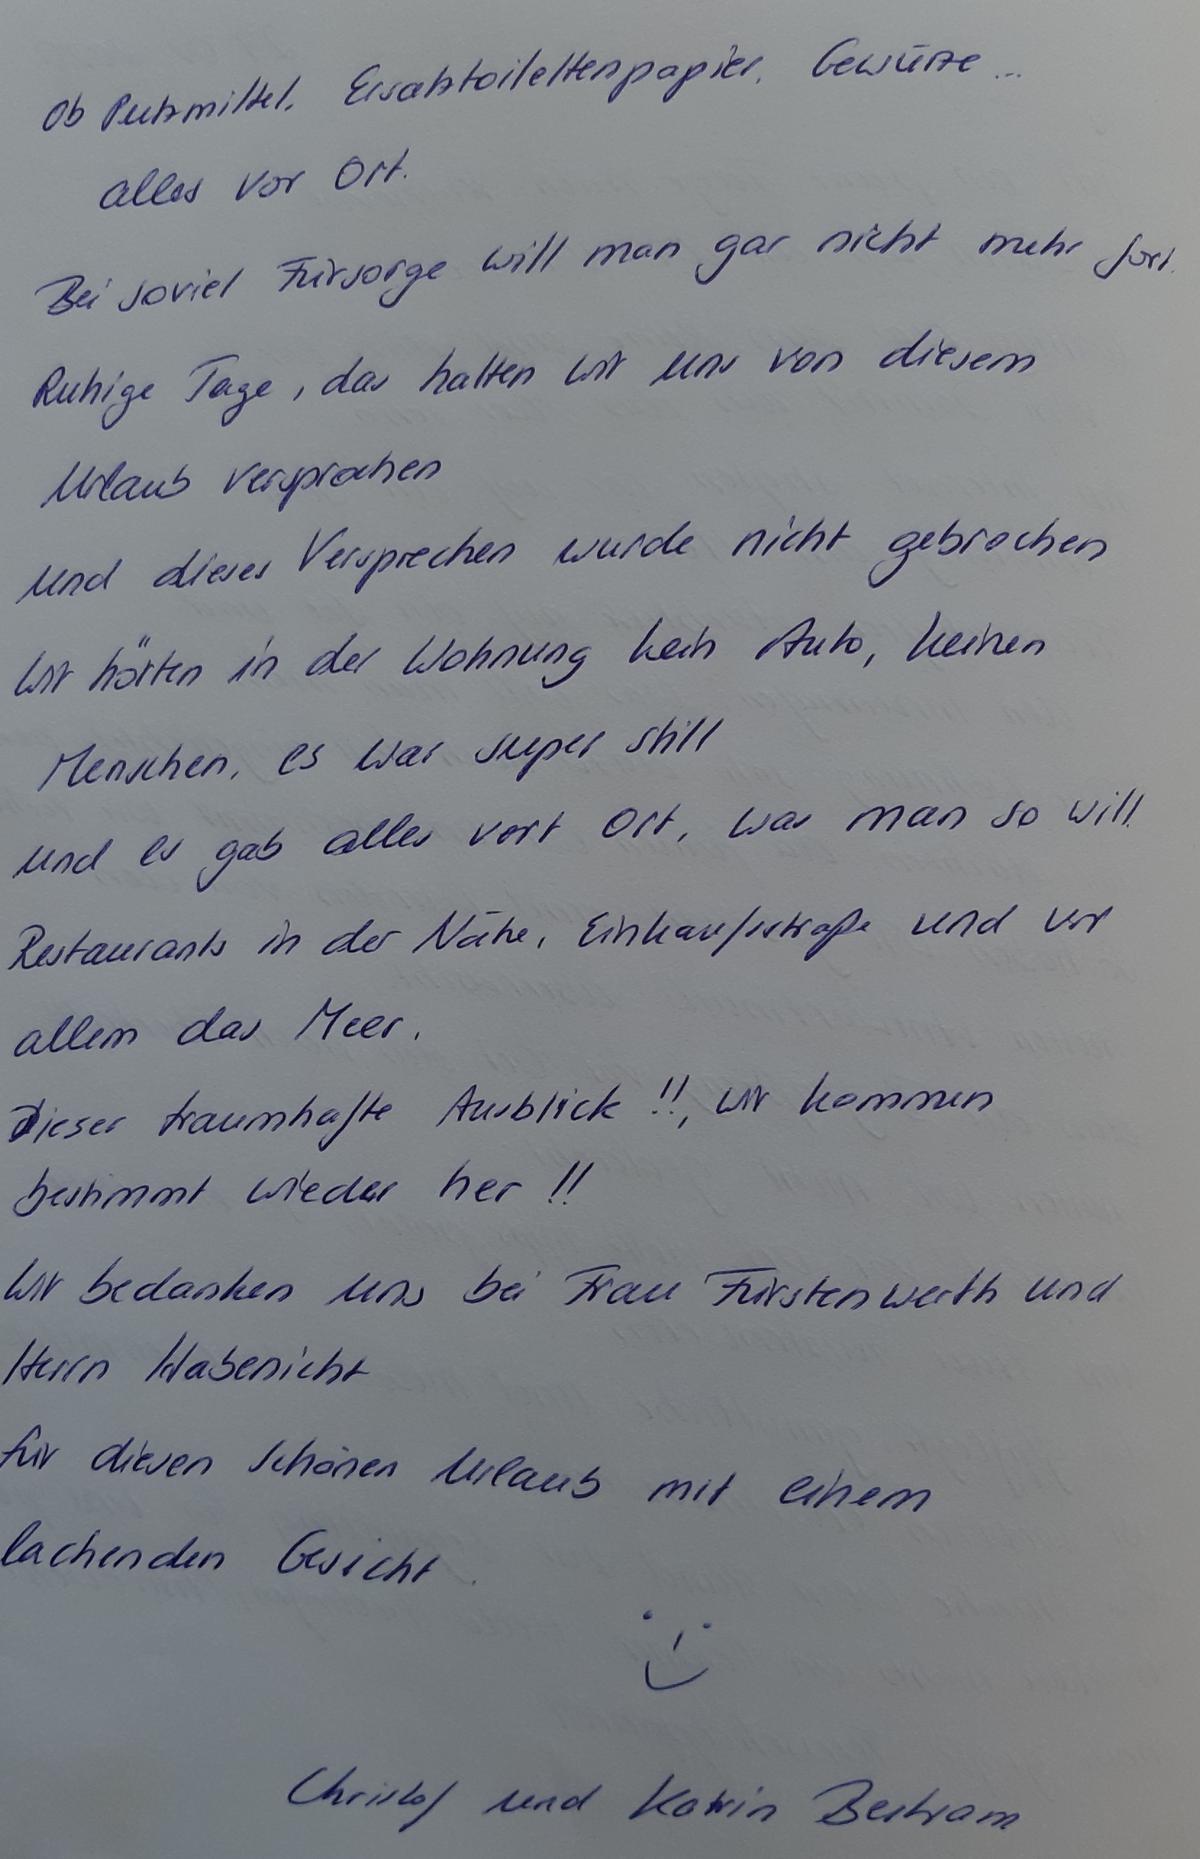 Ob Putzmittel, Ersatztoilettenpapier, Gewürze ...
alles vor Ort.
Bei soviel Fürsorge will man gar nicht mehr fort.
Ruhige Tage, das hatten wir uns von diesem
Urlaub versprochen
und dieses Versprechen wurde nicht gebrochen
Wir hörten in der Wohnung kein Auto, keinen
Menschen, es war super still
und es gab alles vort Ort, was man so will.
Restaurants in der Nähe, Einkaufsstraße und vor
allem das Meer.
Dieser traumhafte Ausblick !!, wir kommen
bestimmt wieder her !!
Wir bedanken uns bei Frau Fürstenwerth und
Herrn Habenicht
für diesen schönen Urlaub mit einem
lachenden Gesicht.
Christof und Katrin Bertram